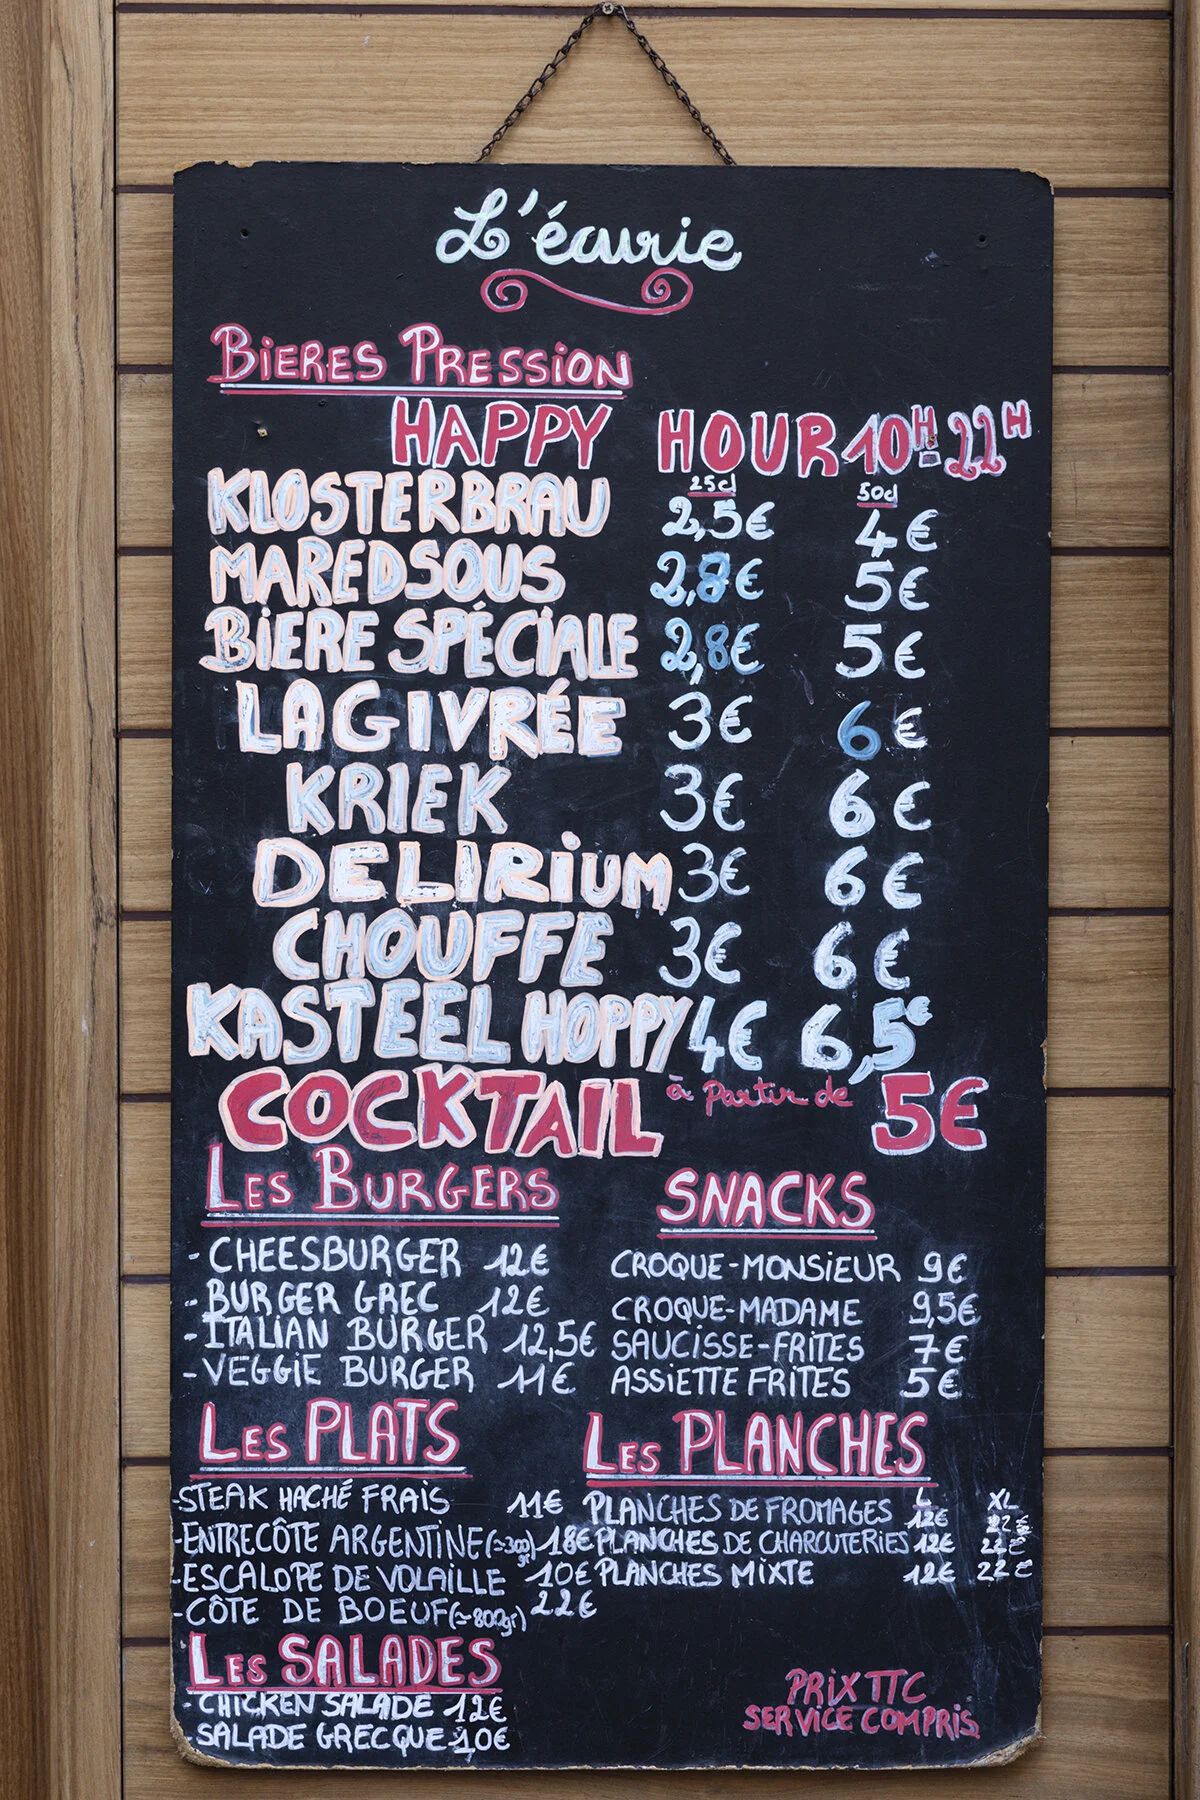 L'écurie
BiERES PRESSiON
HAPPY HOUR 10H-22H
25cl 50cl
KLOSTERBRAU 2,5€ 4€
MAREDSOUS 2,8€ 5€
BiERE SPÉCiALE 2,8€ 5€
LAGIVRÉE 3€ 6€
KRIEK 3€ 6€
DELIRiUM 3€ 6€
CHOUFFE 3€ 6€
KASTEEL HOPPY 4€ 6,5€
COCKTAIL à partir de 5€
LES BURGERS
- CHEESBURGER 12€
- BURGER GREC 12€
- ITALIAN BURGER 12,5€
- VEGGIE BURGER 11€
SNACKS
CROQUE-MONSIEUR 9€
CROQUE-MADAME 9,5€
SAUCISSE-FRITES 7€
ASSIETTE FRITES 5€
LES PLATS
-STEAK HACHÉ FRAIS 11€
-ENTRECÔTE ARGENTINE (≃300gr) 18€
-ESCALOPE DE VOLAILLE 10€
-CÔTE DE BOEUF (≃800gr) 22€
LES PLANCHES
L XL
PLANCHES DE FROMAGES 12€ 22€
PLANCHES DE CHARCUTERIES 12€ 22€
PLANCHES MIXTE 12€ 22€
LES SALADES
- CHICKEN SALADE 12€
- SALADE GRECQUE 10€
PRIX TTC
SERVICE COMPRIS